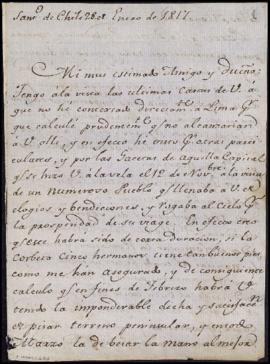 Sanꞇᵒ de Chile 28 de Enero de 1817.
Mi mui estimado Amigo y Dueño:
Tengo á la vista las ultimas Cartas de V. á
que no he contestado directamᵗᵉ á Lima pʳ
que calculé prudentemᵗᵉ qᵉ no alcanzarian
á V. alli, y en efecto he visto pʳ otras parti-
culares, y por las Gacetas de aquella Capital
qᵉ se hizo V. á la vela el 12 de Novᵇʳᵉ á la vista
de un numeroso Pueblo qᵉ llenaba á V. de e-
logios y bendiciones, y rogaba al Cielo pʳ
la prosperidad de su viage. En efecto creo
qᵉ este habrá sido de corta duracion, si la
Corbeta Cinco hermanos tiene tan buenos pies
como me han asegurado, y de consiguiente
calculo qᵉ en fines de Febrero habrá V.
tenido la imponderable dicha y satisfacⁿ
de pisar terreno peninsular, y en todo
Marzo la de besar la mano al mejor